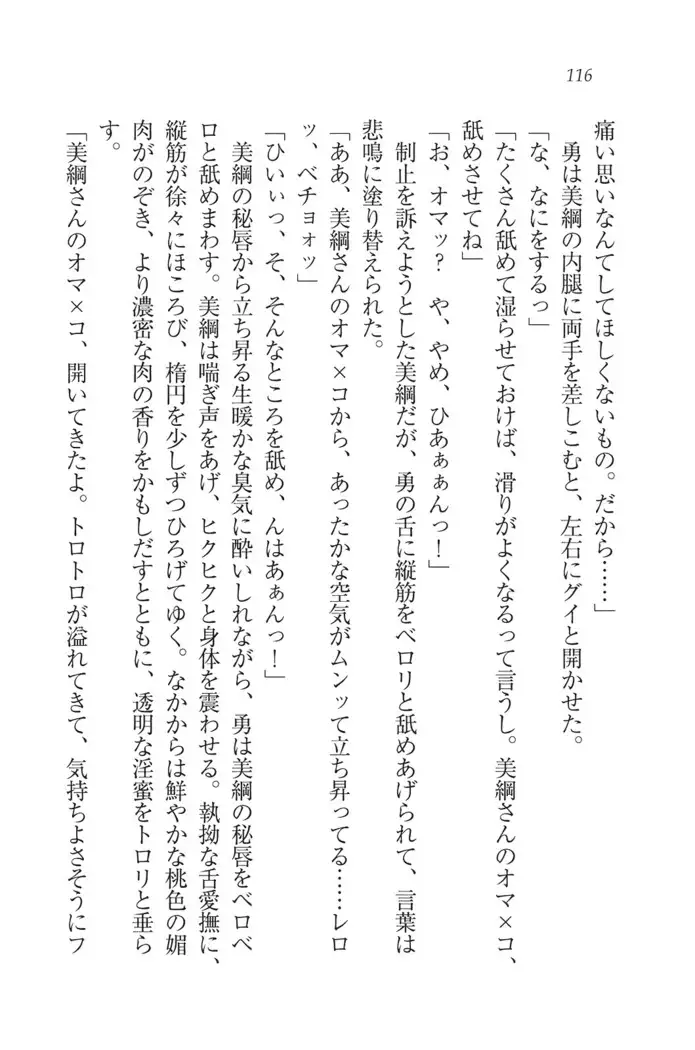 116
痛い思いなんてしてほしくないもの。だから……」
　勇は美綱の内腿に両手を差しこむと、左右にグイと開かせた。
「な、なにをするっ」
「たくさん舐めて湿らせておけば、滑りがよくなるって言うし。美綱さんのオマ×コ、
舐めさせてね」
「お、オマッ？　や、やめ、ひあぁぁんっ！」
　制止を訴えようとした美綱だが、勇の舌に縦筋をベロリと舐めあげられて、言葉は
悲鳴に塗り替えられた。
「ああ、美綱さんのオマ×コから、あったかな空気がムンッて立ち昇ってる……レロ
ッ、ベチョォッ」
「ひいぃっ、そ、そんなところを舐め、んはあぁんっ！」
　美綱の秘唇から立ち昇る生暖かな臭気に酔いしれながら、勇は美綱の秘唇をベロベ
ロと舐めまわす。美綱は喘ぎ声をあげ、ヒクヒクと身体を震わせる。執拗な舌愛撫に、
縦筋が徐々にほころび、楕円を少しずつひろげてゆく。なかからは鮮やかな桃色の媚
肉がのぞき、より濃密な肉の香りをかもしだすとともに、透明な淫蜜をトロリと垂ら
す。
「美綱さんのオマ×コ、開いてきたよ。トロトロが溢れてきて、気持ちよさそうにフ